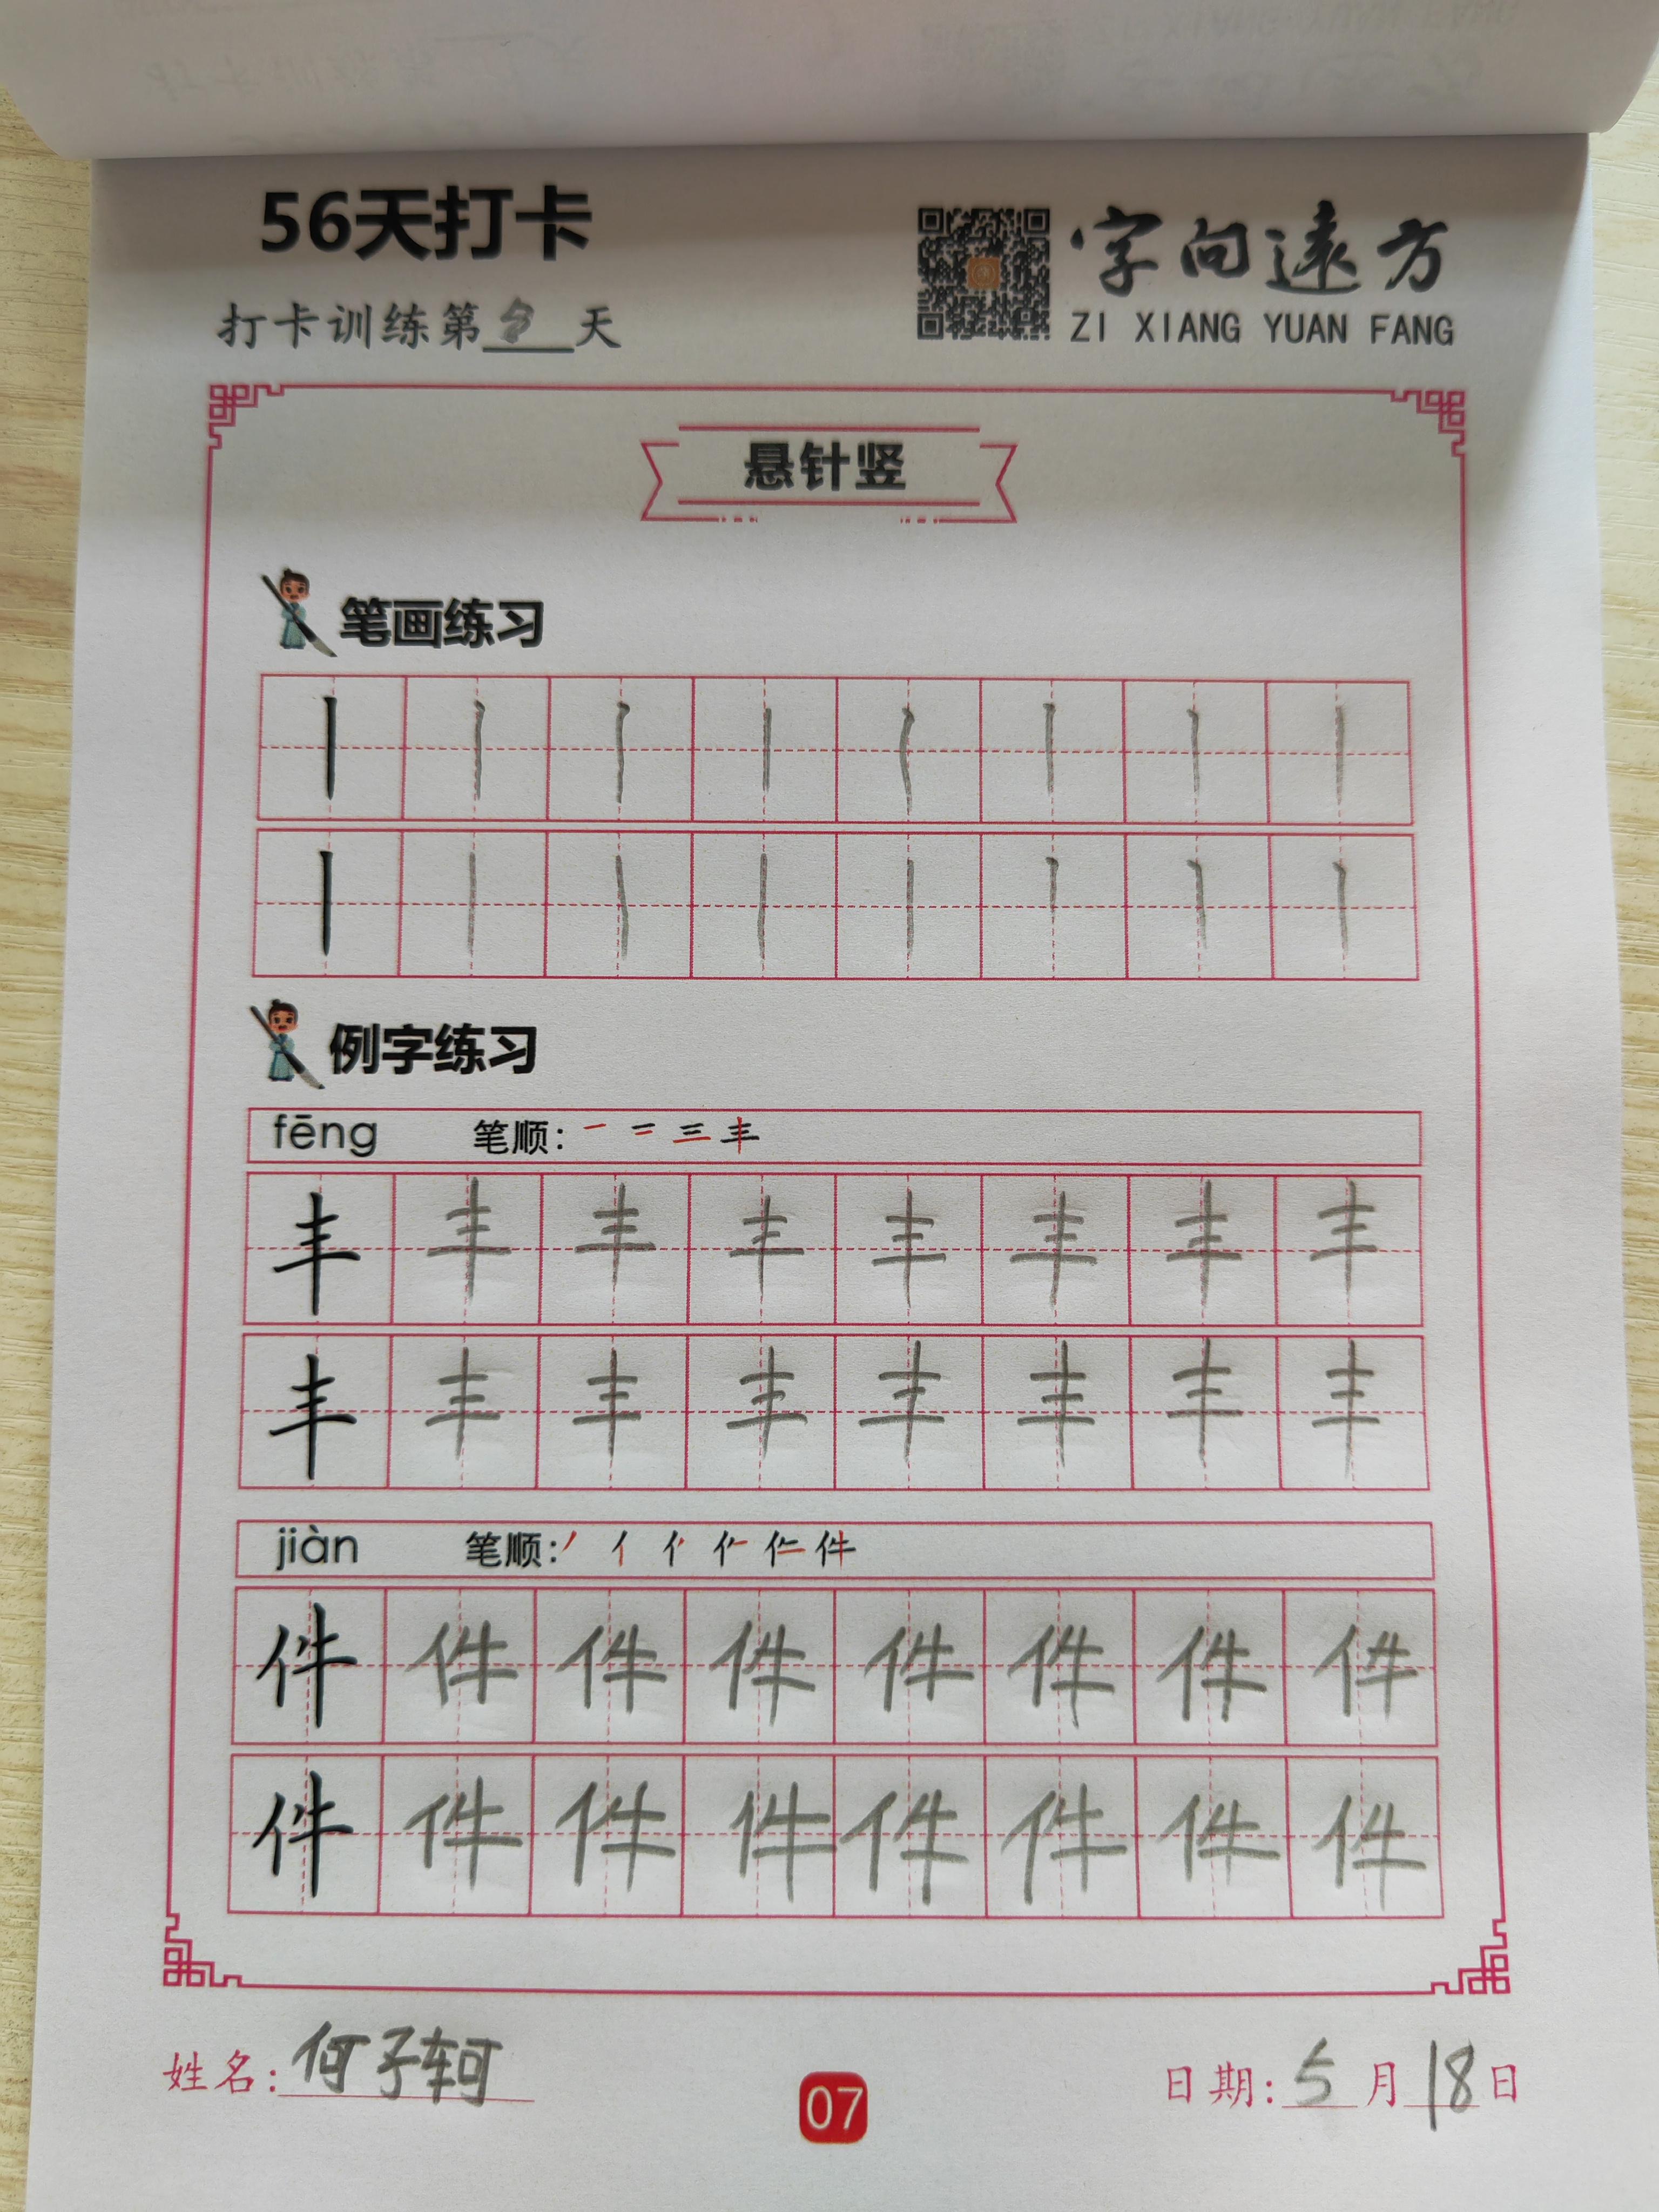 56天打卡
字向遠方
打卡训练第 天
ZI XIANG YUAN FANG
悬针竖
笔画练习
丨 丨 丨 丨 丨 丨 丨 丨
丨 丨 丨 丨 丨 丨 丨 丨
例字练习
fēng 笔顺: 一 二 三 丰
丰 丰 丰 丰 丰 丰 丰 丰
丰 丰 丰 丰 丰 丰 丰 丰
jiàn 笔顺: 件
件 件 件 件 件 件 件 件
件 件 件 件 件 件 件 件
姓名: 何子轲
07
日期: 5月18日